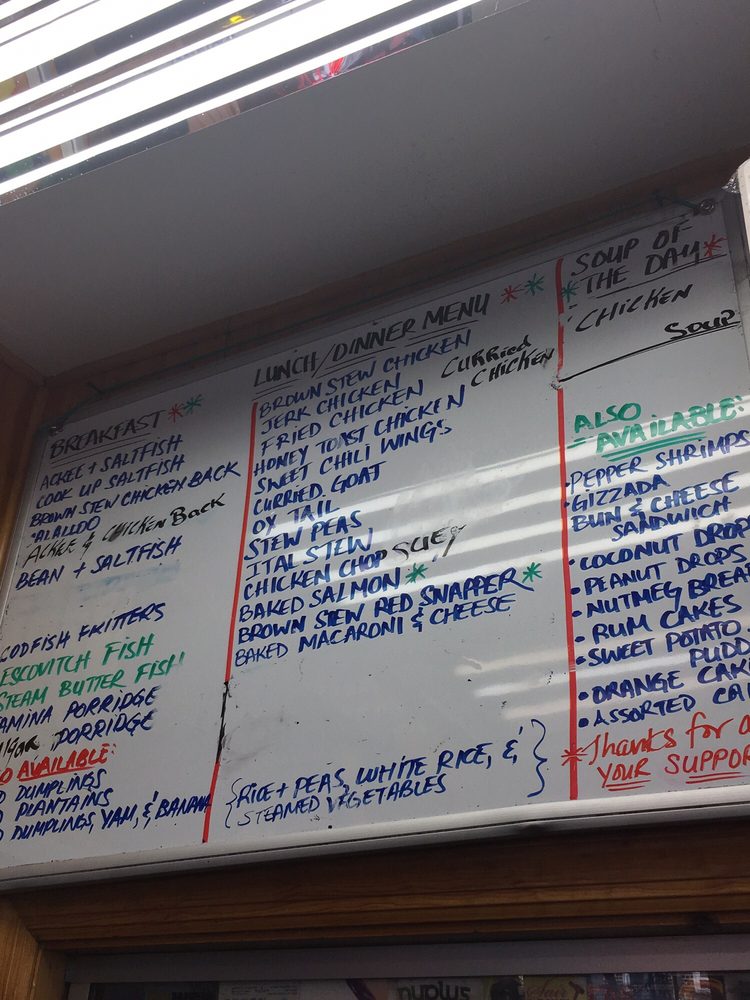 BREAKFAST **
ACKEE + SALTFISH
COOK UP SALTFISH
BROWN STEW CHICKEN BACK
*ALALLOO
ACKEE & CHICKEN BACK
BEAN + SALTFISH
CODFISH FRITTERS
ESCOVITCH FISH
STEAM BUTTER FISH
AMINA PORRIDGE
PORRIDGE
O AVAILABLE:
D DUMPLINGS
D PLANTAINS
D DUMPLINGS, YAM, & BANANA
LUNCH/DINNER MENU **
BROWN STEW CHICKEN
JERK CHICKEN
CURRIED CHICKEN
FRIED CHICKEN
HONEY TOAST CHICKEN
SWEET CHILI WINGS
CURRIED GOAT
OX TAIL
STEW PEAS
ITAL STEW
CHICKEN CHOP SUEY
BAKED SALMON *
BROWN STEW RED SNAPPER *
BAKED MACARONI & CHEESE
{RICE + PEAS, WHITE RICE, &
STEAMED VEGETABLES}
SOUP OF
* THE DAY *
CHICKEN
SOUP
ALSO
AVAILABLE:
• PEPPER SHRIMPS
• GIZZADA
BUN & CHEESE
SANDWICH
• COCONUT DROP
• PEANUT DROPS
• NUTMEG BREA
• RUM CAKES
• SWEET POTATO
PUDD
• ORANGE CAK
• ASSORTED CA
* Thanks for
YOUR SUPPOR
nuplus